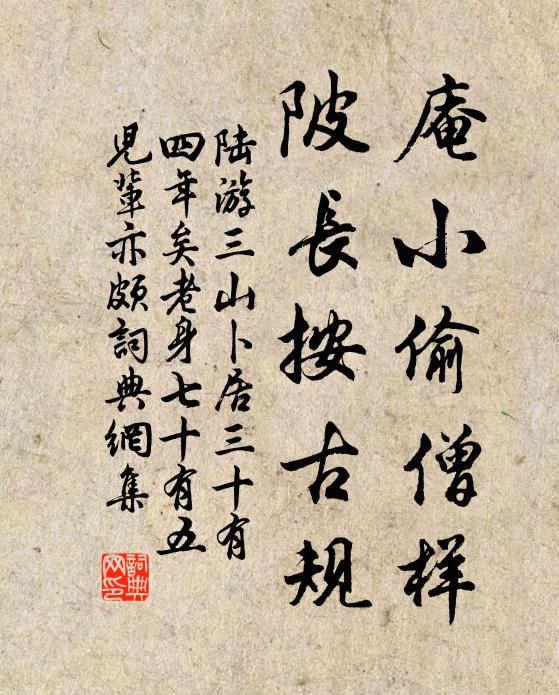 庵小偷僧样
陂長按古規
陆游三山卜居三十有
四年矣老身七十有五
児輩亦頗詞典網集
詞典
网印